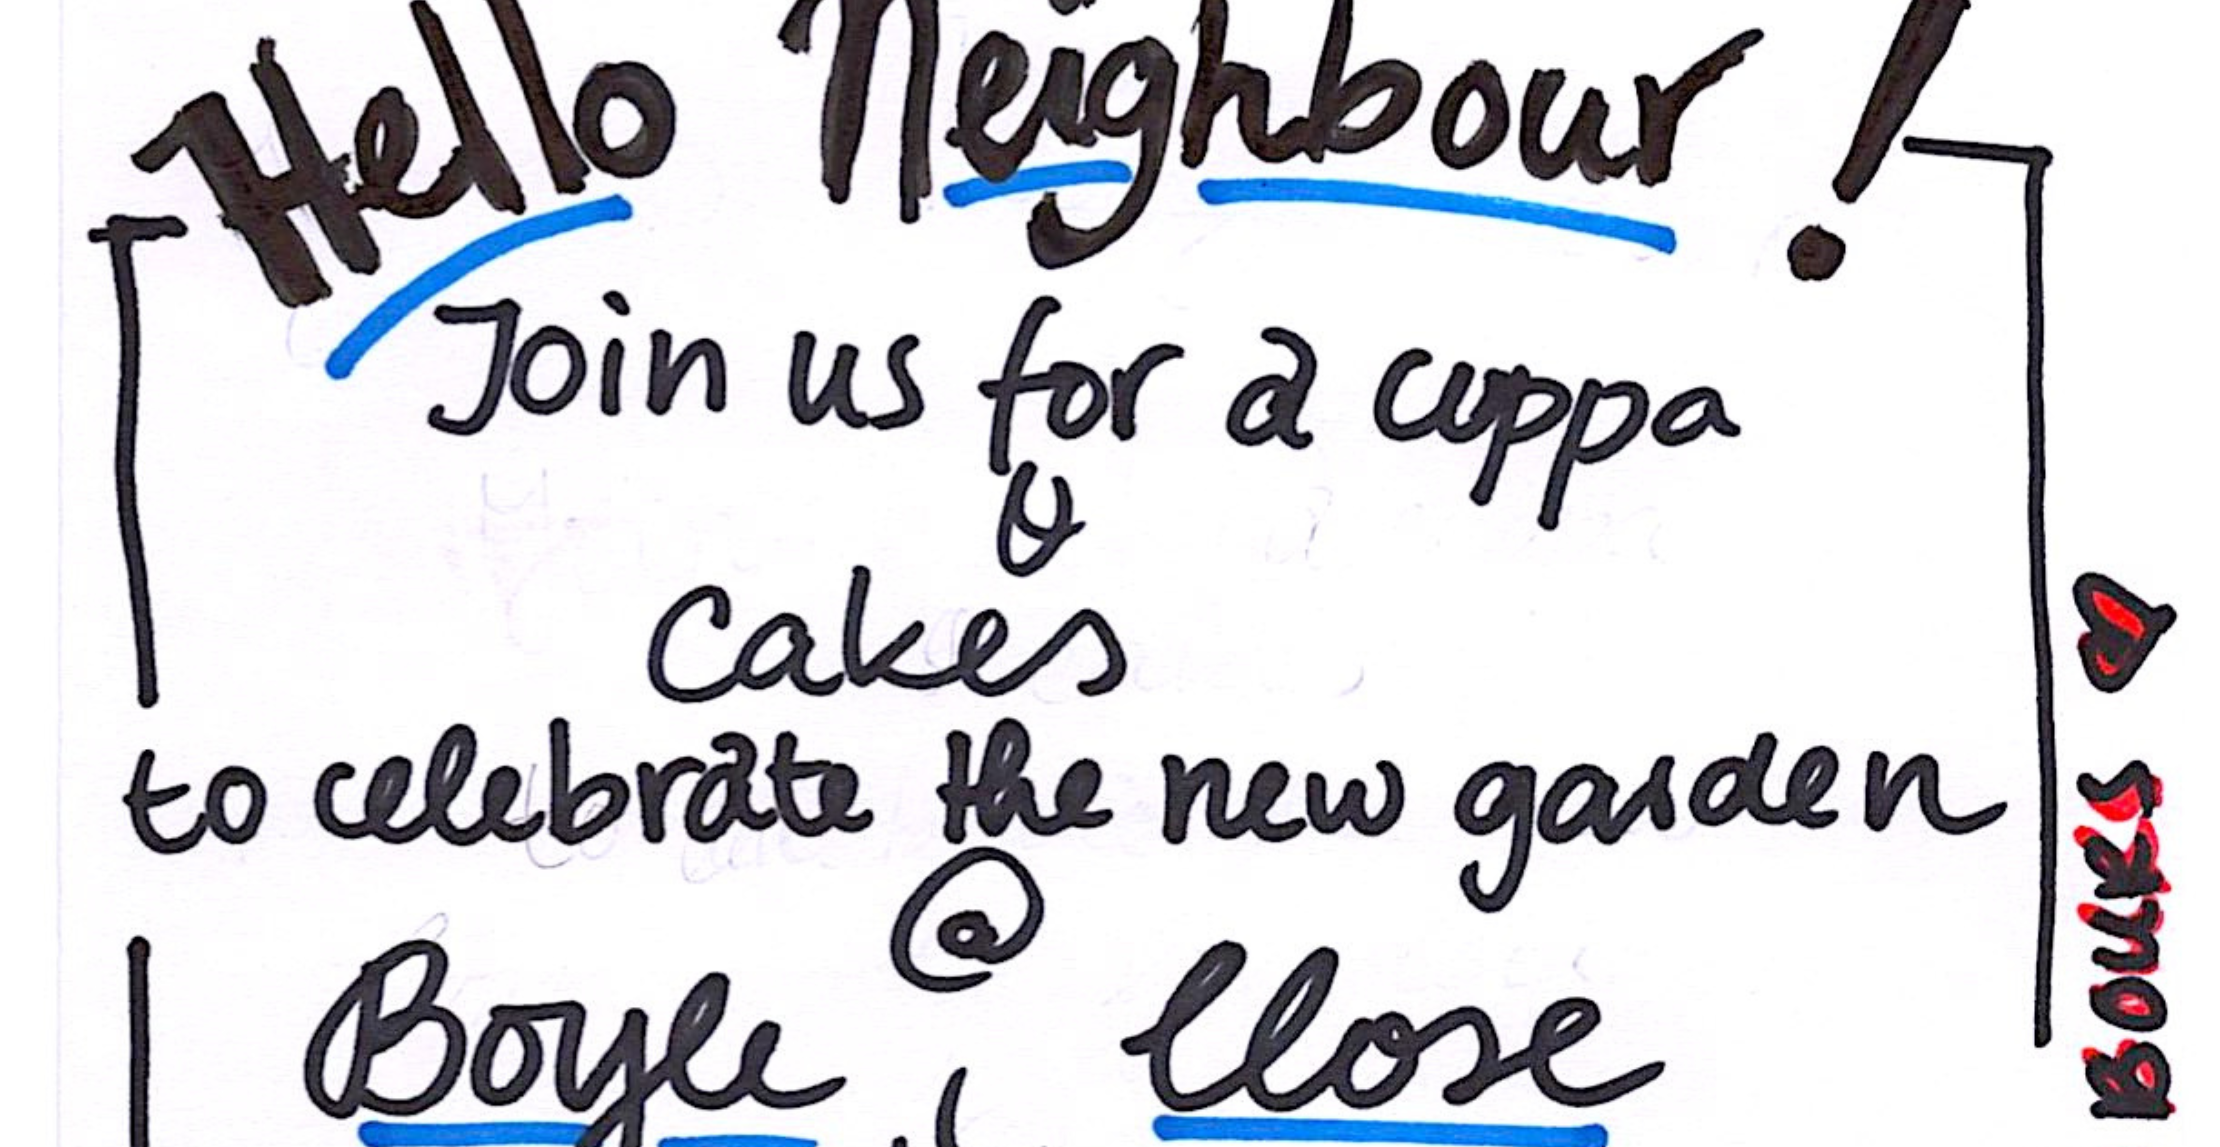 Hello Neighbour!
Join us for a cuppa
&
Cakes
to celebrate the new garden
@
Boyle Close
BOURKS